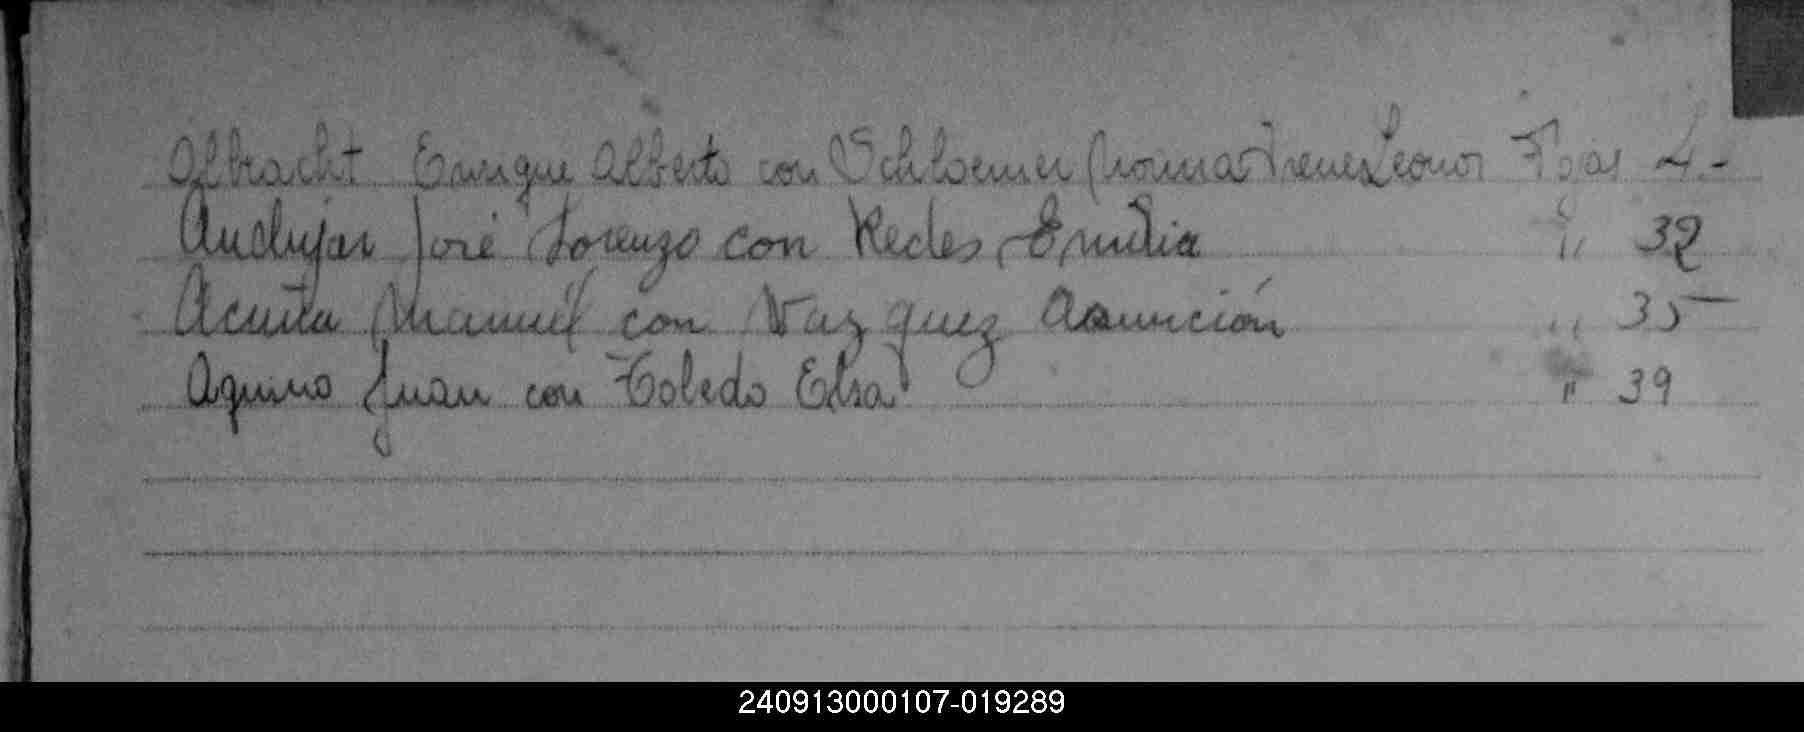 Olbracht Enrique Alberto con Schloemer Norma Irene Leonor Fojas 4.-
Andujar José Lorenzo con Redes Emilia " 32
Acuña Manuel con Vazquez Asunción " 35
Aquino Juan con Toledo Elsa " 39
240913000107-019289